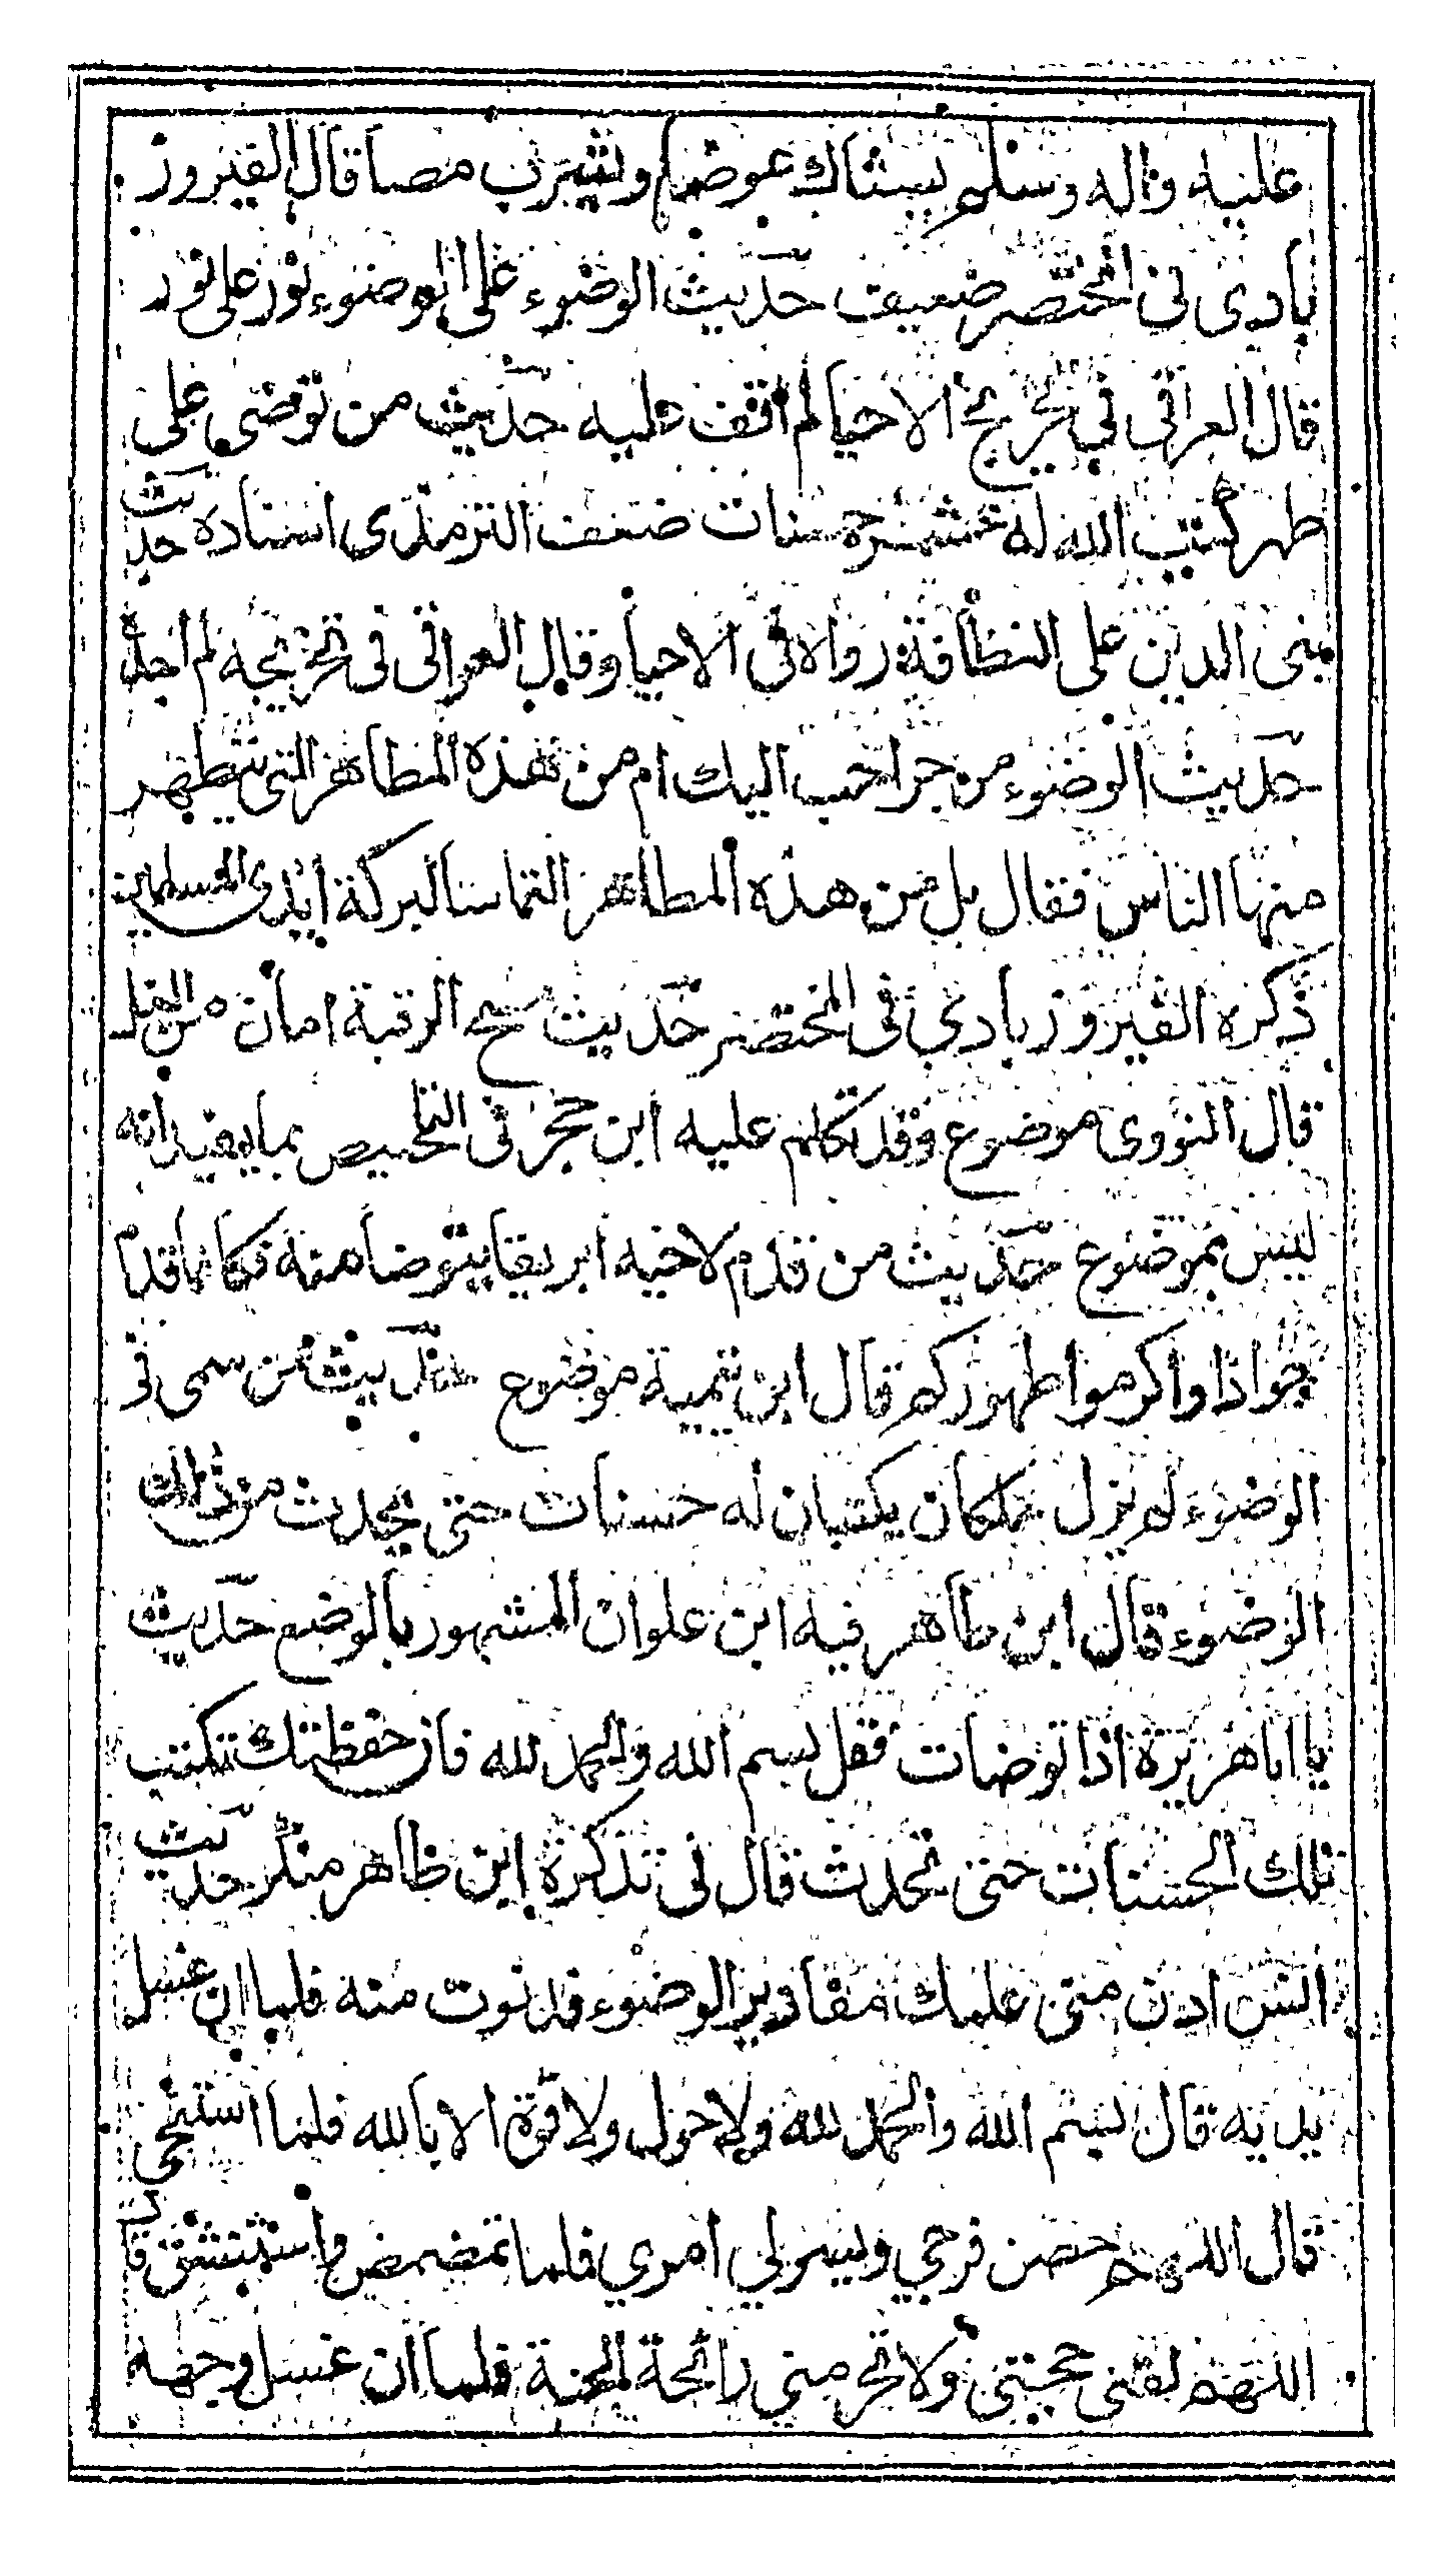 عليه واله وسلم يستاك عرضا ويشرب مصا قال الفيروز
بادي في المختصر ضعيف حديث الوضوء على الوضوء نور على نور
قال العراقي في تخريج الاحيا لم اقف عليه حديث من توضى على
طهر كتب الله له عشر حسنات ضعف الترمذي اسناده حديث
بني الدين على النظافة رواه في الاحيا وقال العراقي في تخريجه لم اجده
حديث الوضوء من جر احب اليك ام من هذه المطاهر التي يتطهر
منها الناس فقال بل من هذه المطاهر التماسا لبركة ايدي المسلمين
ذكره الفيروزبادي في المختصر حديث مسح الرقبة امان من الغل
قال النووي موضوع وقد تكلم عليه ابن حجر في التلخيص بما يفيد انه
ليس بموضوع حديث من قدم لاخيه ابريقا يتوضا منه فكانما قدم
جوادا واكرموا طهوركم قال ابن تيمية موضوع حديث من سمى في
الوضوء لم يزل ملكان يكتبان له حسنات حتى يحدث من ذلك
الوضوء قال ابن طاهر فيه ابن علوان المشهور بالوضع حديث
يا ابا هريرة اذا توضات فقل بسم الله والحمد لله فان حفظتك تكتب
تلك الحسنات حتى تحدث قال في تذكرة ابن طاهر منكر حديث
انس ادن مني علمك مقادير الوضوء فدنوت منه فلما ان غسل
يديه قال بسم الله والحمد لله ولا حول ولا قوة الا بالله فلما استنجى
قال اللهم حصن فرجي ويسر لي امري فلما تمضمض واستنشق قال
اللهم لقني حجتي ولا تحرمني رائحة الجنة فلما ان غسل وجهه